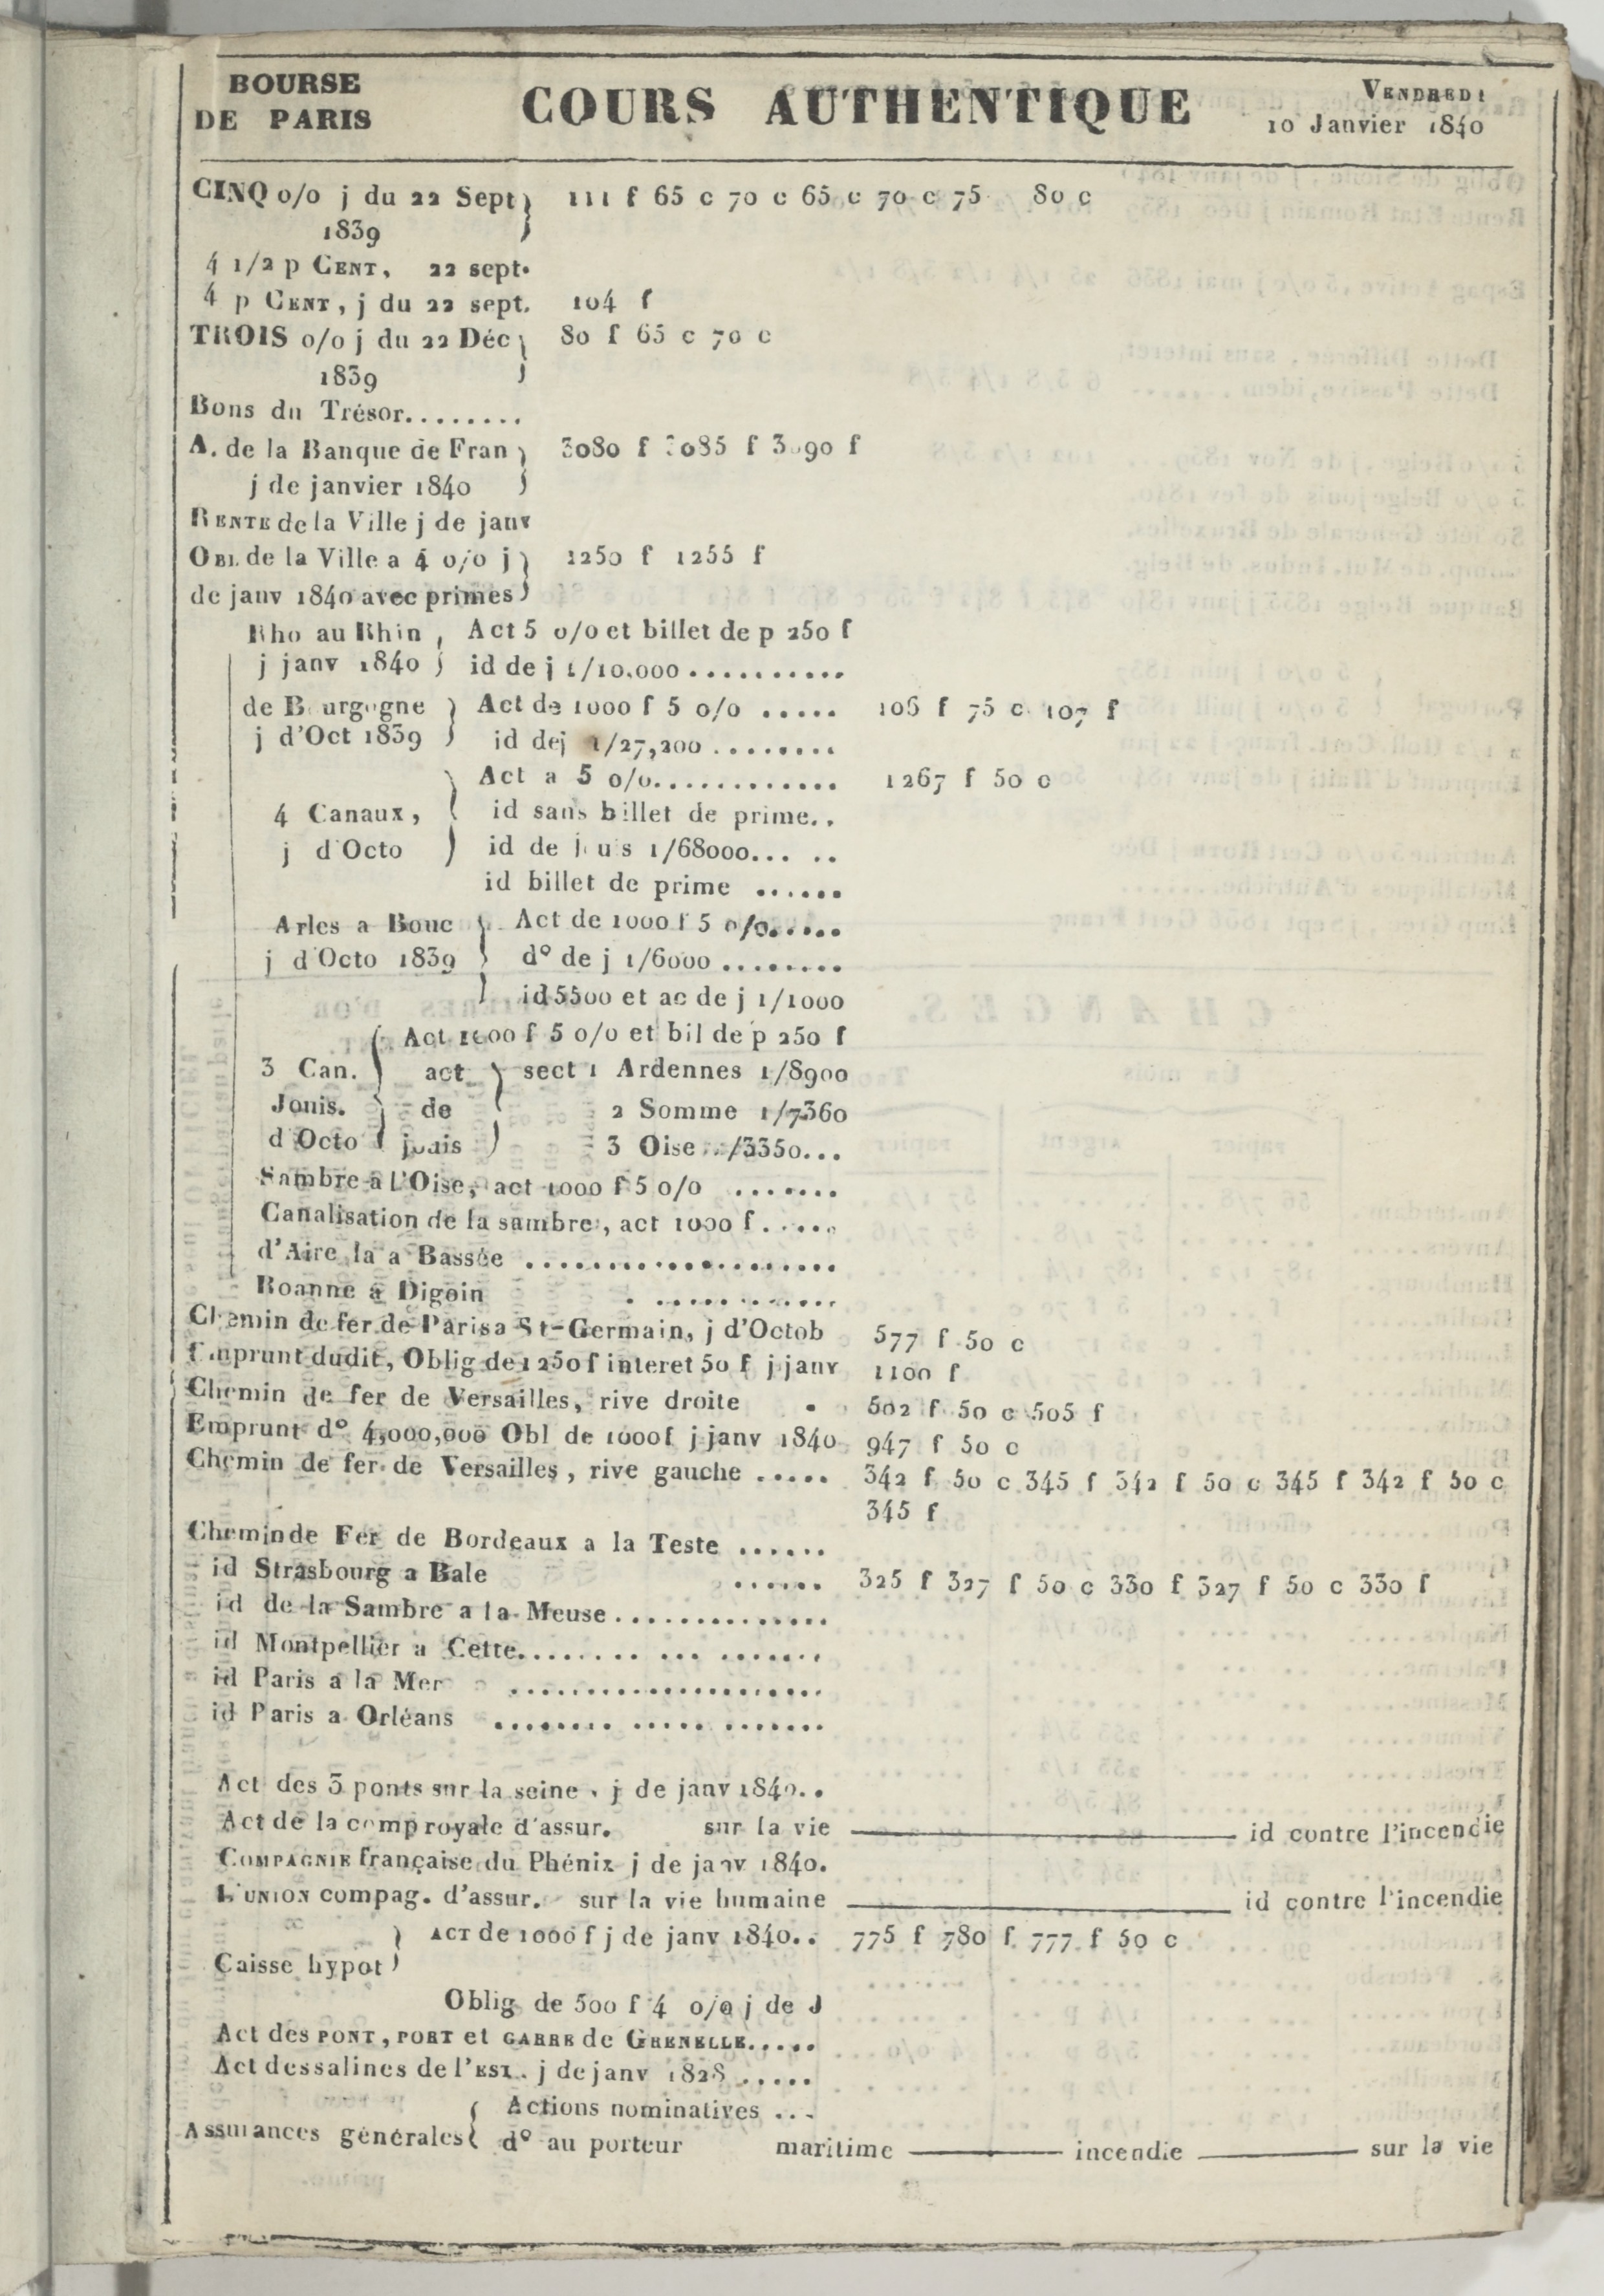 BOURSE
DE PARIS
COURS AUTHENTIQUE
VENDREDI
10 Janvier 1840
CINQ o/o j du 22 Sept 111 f 65 c 70 c 65 c 70 c 75 80 c
1839
4 1/2 p CENT, 22 sept.
4 p CENT, j du 22 sept. 104 f
TROIS o/o j du 22 Déc 80 f 65 c 70 c
1839
Bons du Trésor........
A. de la Banque de Fran 3080 f 3085 f 3090 f
j de janvier 1840
RENTE de la Ville j de janv
OBL de la Ville a 4 o/o j 1250 f 1255 f
de janv 1840 avec primes
Rho au Rhin, Act 5 o/o et billet de p 250 f
j janv 1840 id de j 1/10.000..........
de Bourgogne Act de 1000 f 5 o/o ..... 106 f 75 c 107 f
j d'Oct 1839 id dej 1/27,200........
Act a 5 o/o............ 1267 f 50 c
4 Canaux, id sans billet de prime..
j d'Octo id de jouis 1/68000... ..
id billet de prime ......
Arles a Bouc Act de 1000 f 5 o/o......
j d'Octo 1839 d° de j 1/6000........
id 5500 et ac de j 1/1000
Act 1000 f 5 o/o et bil de p 250 f
3 Can. act sect 1 Ardennes 1/8900
Jouis. de 2 Somme 1/7360
d'Octo jouis 3 Oise /3350...
Sambre a L'Oise, act 1000 f 5 o/o .......
Canalisation de la sambre, act 1000 f......
d'Aire la a Bassée ....................
Roanne a Digoin . ............
Chemin de fer de Paris a St-Germain, j d'Octob 577 f 50 c
Emprunt dudit, Oblig de 1250 f interet 50 f j janv 1100 f
Chemin de fer de Versailles, rive droite . 502 f 50 c 505 f
Emprunt d° 4,000,000 Obl de 1000f j janv 1840 947 f 50 c
Chemin de fer de Versailles, rive gauche ..... 342 f 50 c 345 f 342 f 50 c 345 f 342 f 50 c
345 f
Chemin de Fer de Bordeaux a la Teste ......
id Strasbourg a Bale ...... 325 f 327 f 50 c 330 f 327 f 50 c 330 f
id de la Sambre a la Meuse..............
id Montpellier a Cette........ ... .......
id Paris a la Mer .....................
id Paris a Orléans ........ ..... .......
Act des 3 ponts sur la seine, j de janv 1840..
Act de la comp royale d'assur. sur la vie id contre l'incendie
COMPAGNIE française du Phénix j de janv 1840.
L'UNION compag. d'assur. sur la vie humaine id contre l'incendie
ACT de 1000 f j de janv 1840.. 775 f 780 f 777 f 50 c
Caisse hypot
Oblig de 500 f 4 o/o j de J
Act des PONT, PORT et GARRE de GRENELLE.....
Act des salines de l'EST. j de janv 1828 .....
Actions nominatives ...
Assurances générales d° au porteur maritime incendie sur la vie